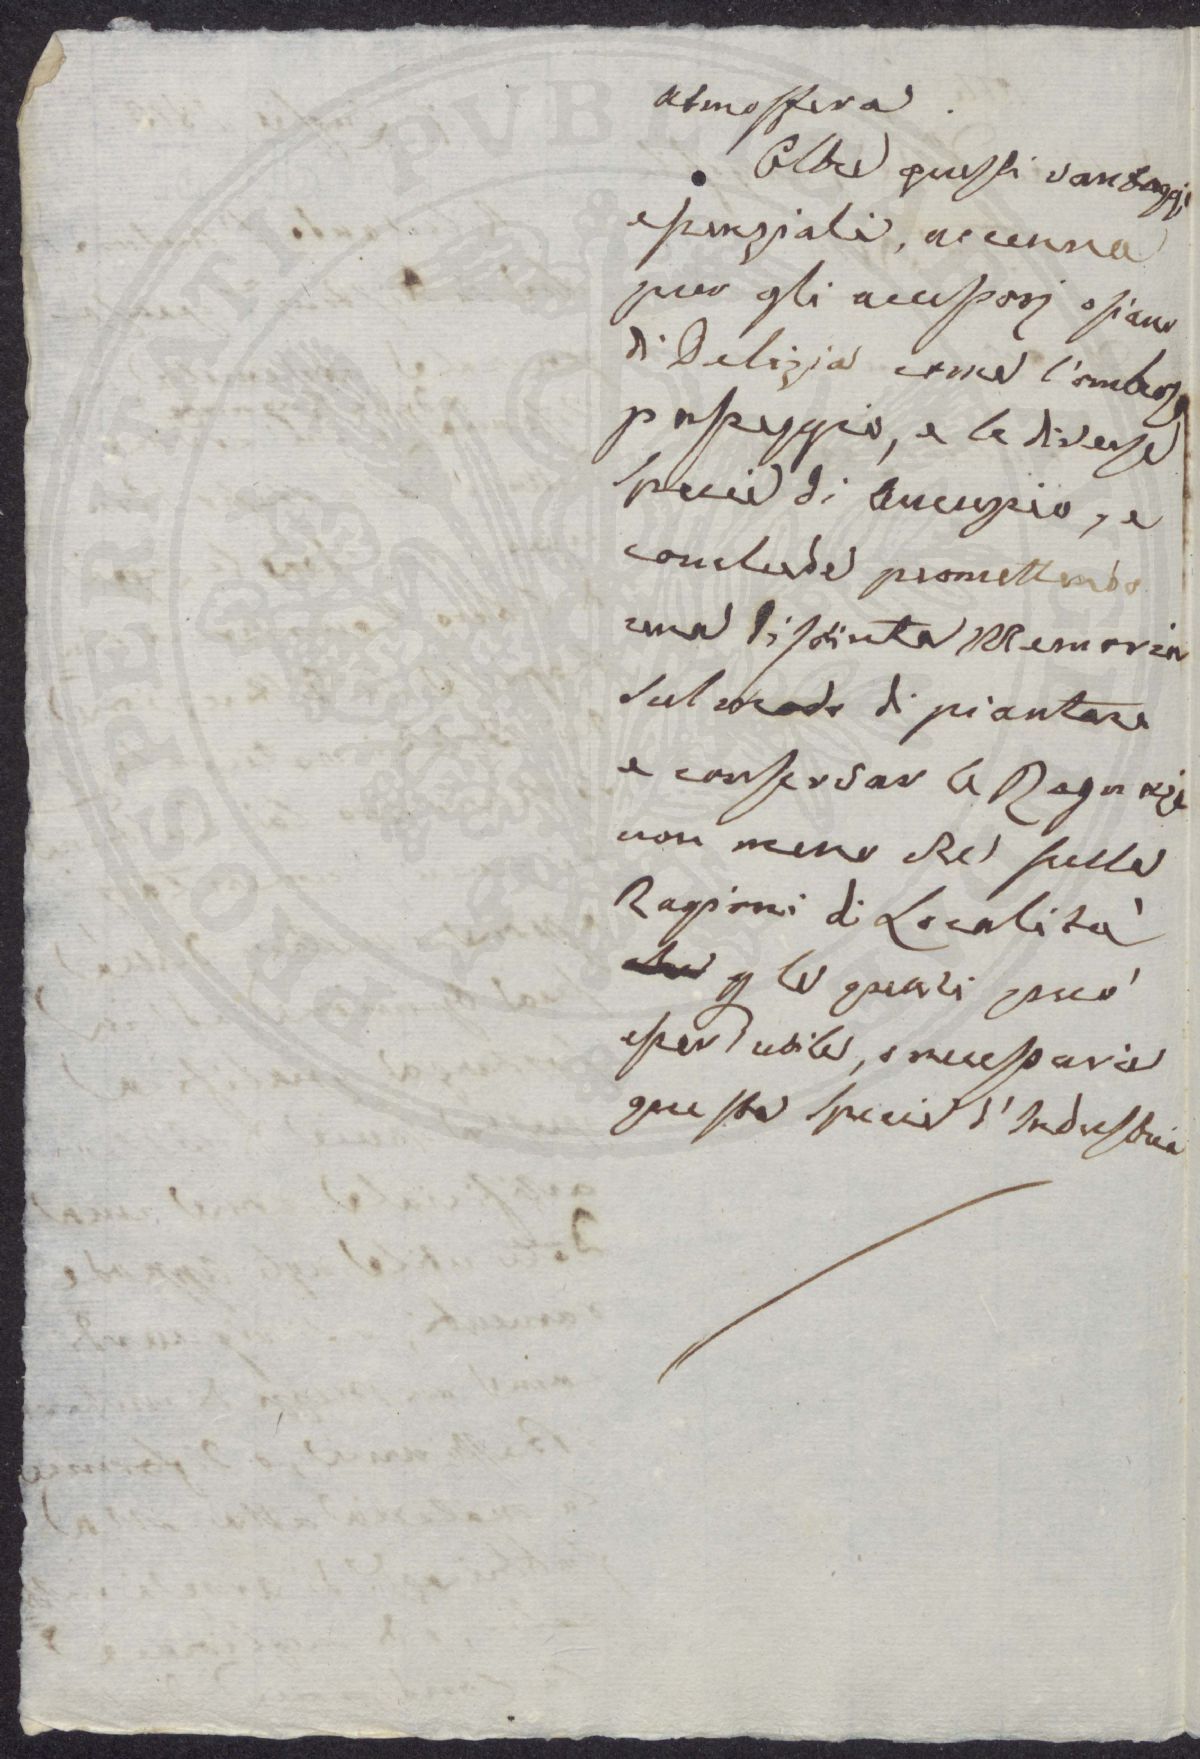 atmosfera.
Oltre questi vantaggi
essenziali, accenna
pur gli accessorj ossiano
di Delizia come l'ombroso
passeggio, e le diverse
specie di Aucupio, e
conclude promettendo
una distinta Memoria
sul modo di piantare
e conservar le Ragnaje
non meno che sulle
Ragioni di Località
p le quali può
esser utile, o necessaria
questa specie d'Industria